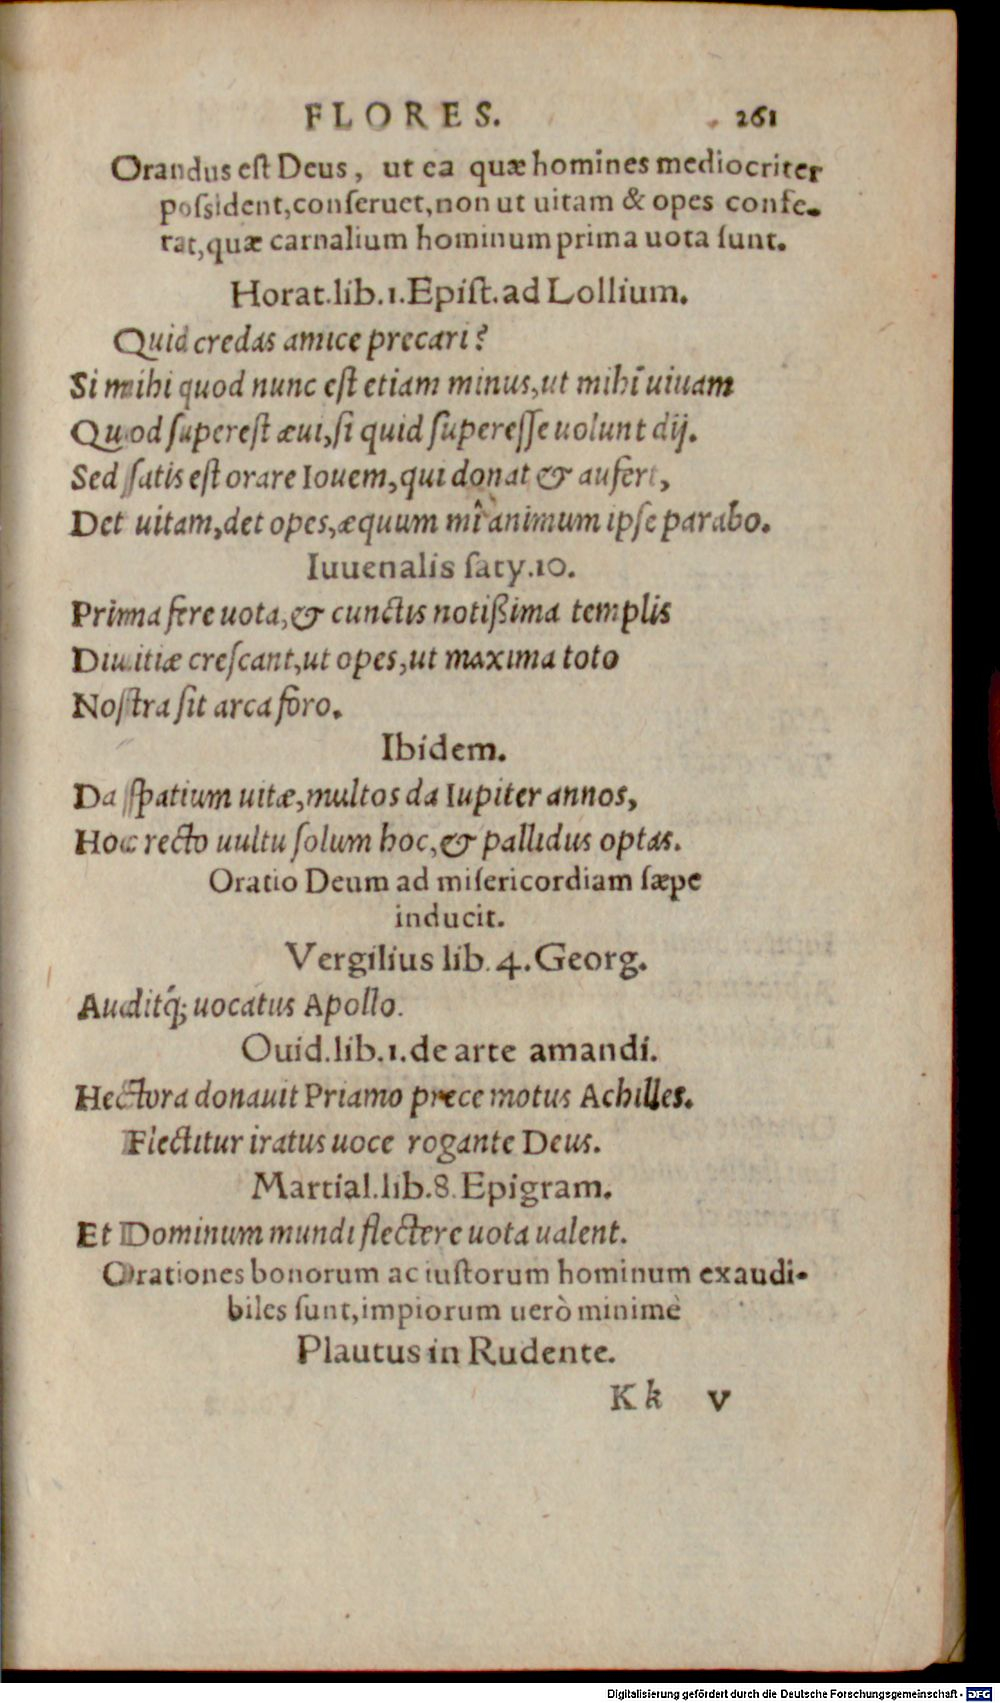 FLORES. 261
Orandus est Deus, ut ea quæ homines mediocriter
possident, conseruet, non ut uitam & opes confe-
rat, quæ carnalium hominum prima uota sunt.
Horat. lib. 1. Epist. ad Lollium.
Quid credas amice precari?
Si mihi quod nunc est etiam minus, ut mihi uiuam
Quod superest æui, si quid superesse uolunt dij.
Sed satis est orare Iouem, qui donat & aufert,
Det uitam, det opes, æquum mî animum ipse parabo.
Iuuenalis saty. 10.
Prima fere uota, & cunctis notißima templis
Diuitiæ crescant, ut opes, ut maxima toto
Nostra sit arca foro.
Ibidem.
Da spatium uitæ, multos da Iupiter annos,
Hoc recto uultu solum hoc, & pallidus optas.
Oratio Deum ad misericordiam sæpe
inducit.
Vergilius lib. 4. Georg.
Auditq́; uocatus Apollo.
Ouid. lib. 1. de arte amandi.
Hectora donauit Priamo prece motus Achilles.
Flectitur iratus uoce rogante Deus.
Martial. lib. 8. Epigram.
Et Dominum mundi flectere uota ualent.
Orationes bonorum ac iustorum hominum exaudi-
biles sunt, impiorum uerò minimè
Plautus in Rudente.
Kk v
Digitalisierung gefördert durch die Deutsche Forschungsgemeinschaft - DFG